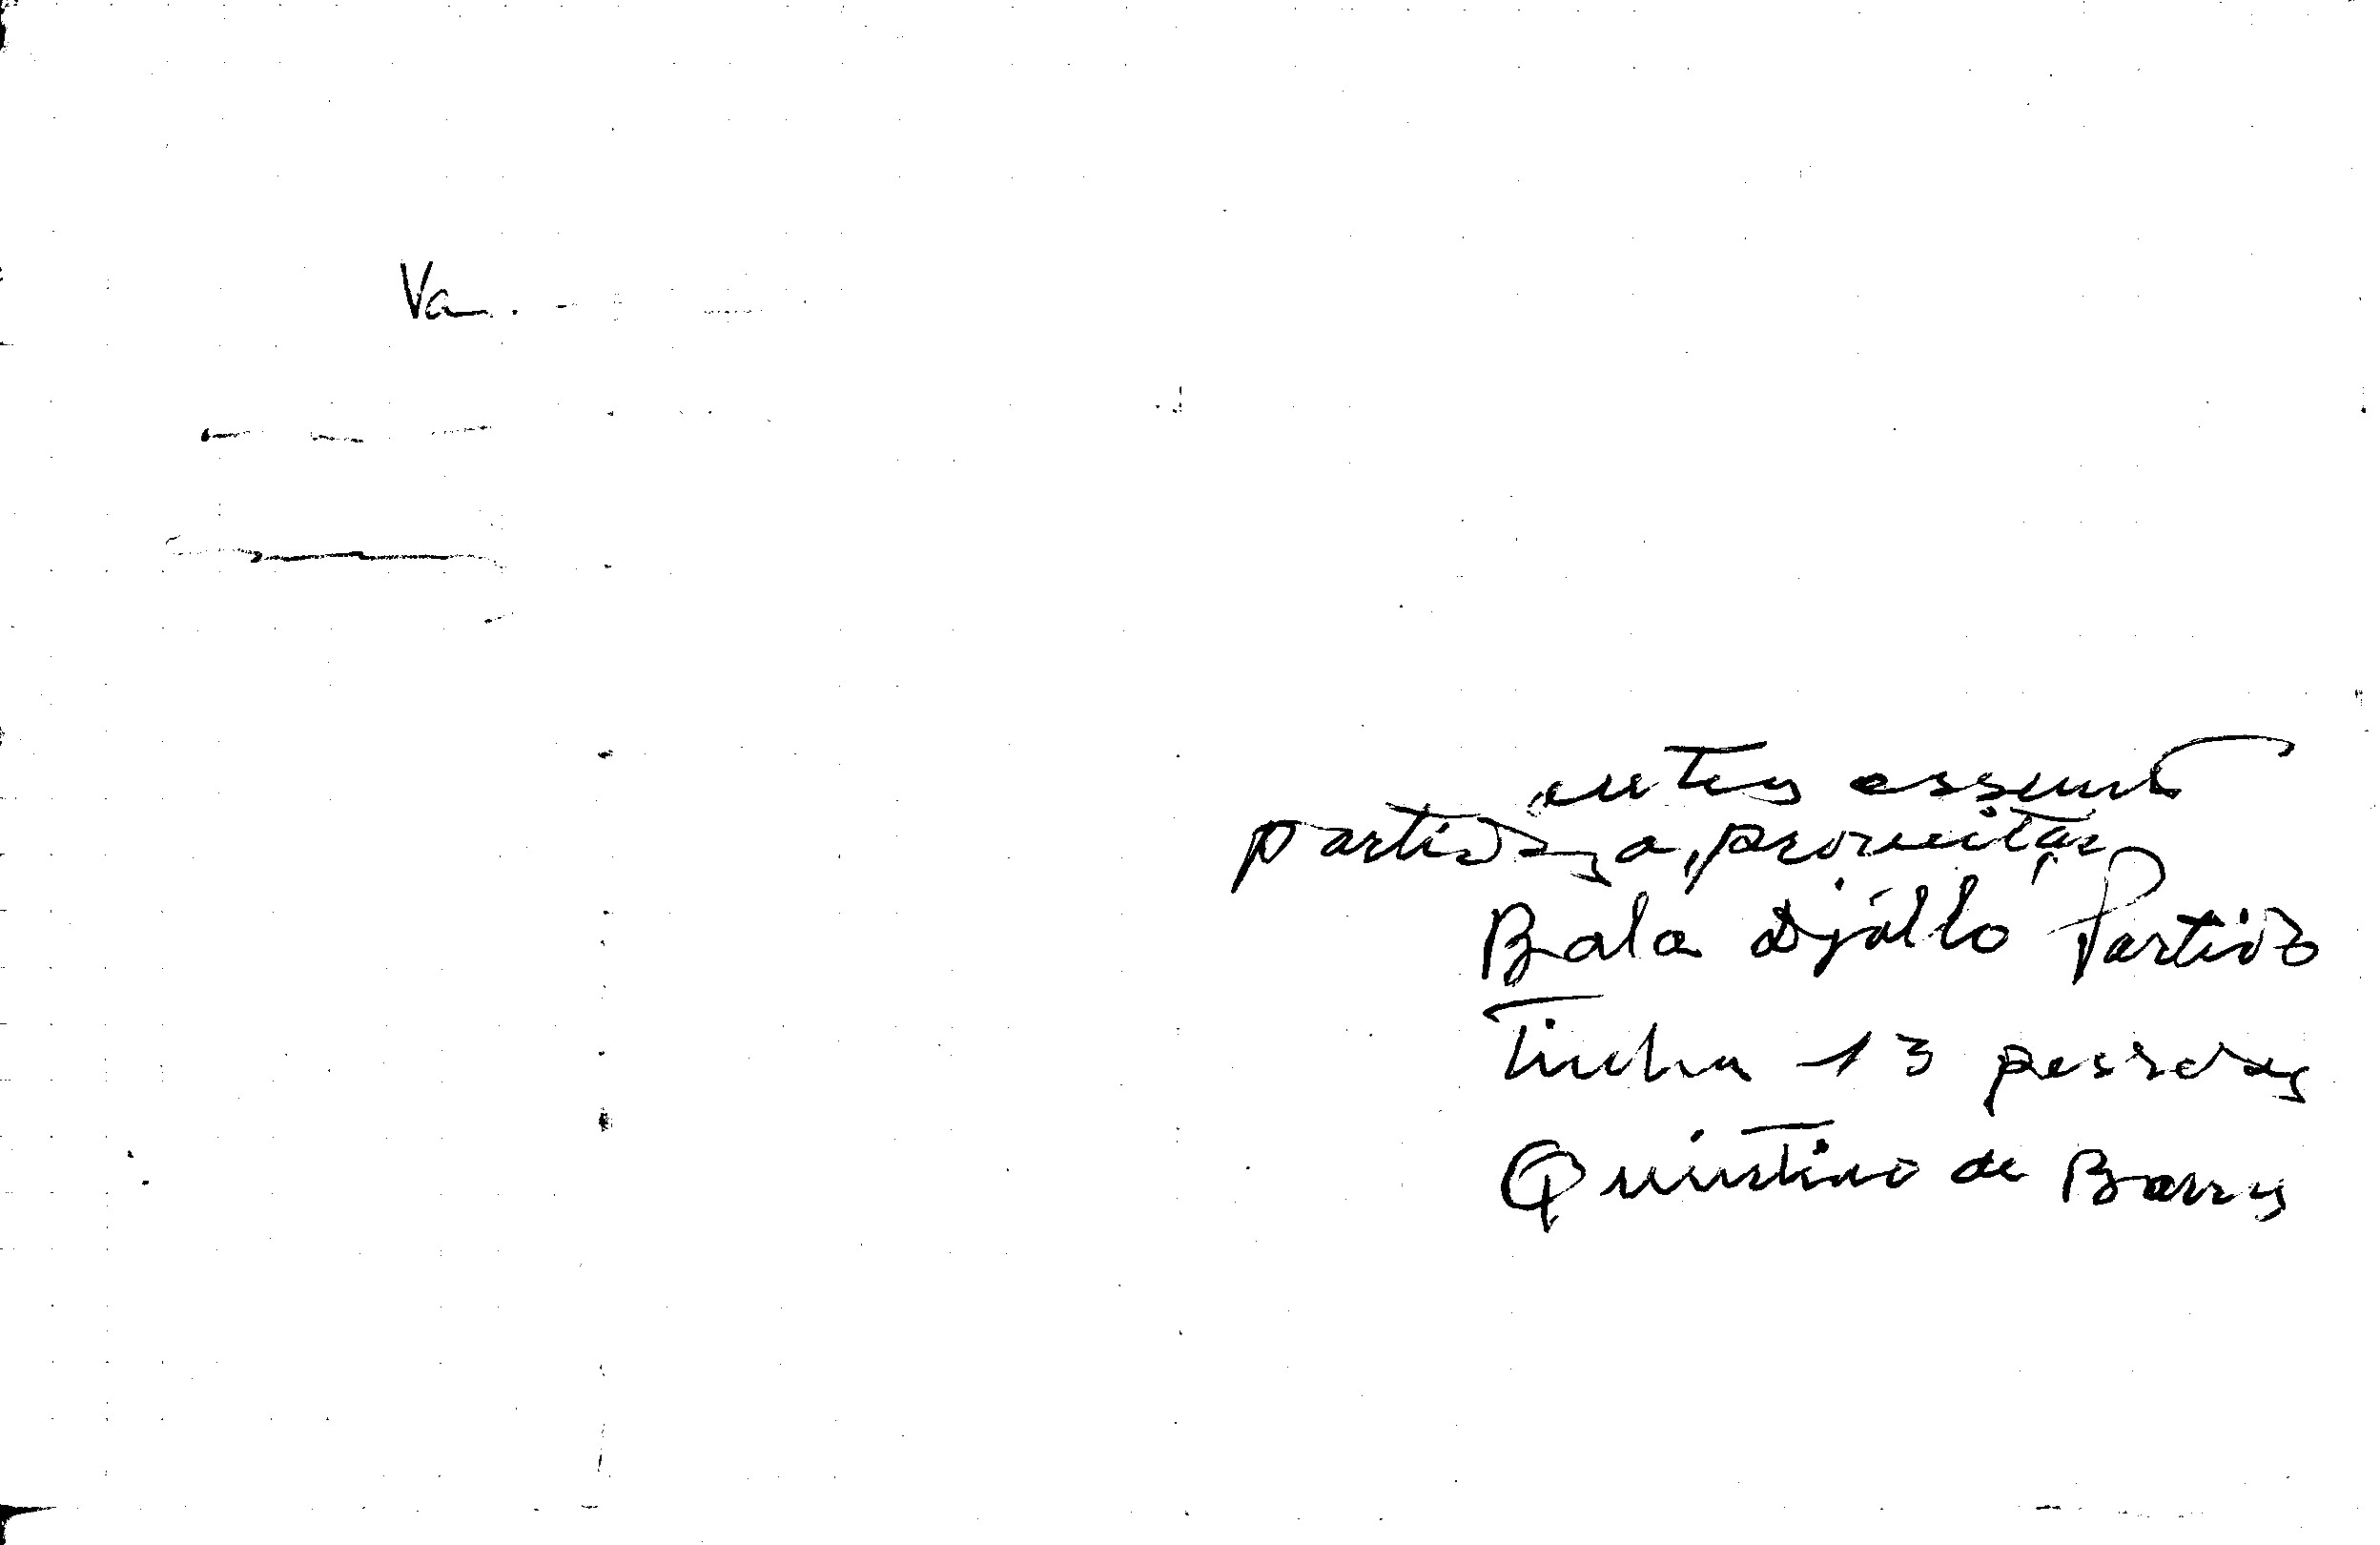 Va
antes assunto
partidos, aproveitar
Bala Djalló Partido
Tinha 13 pessoas
Quintino de Barros